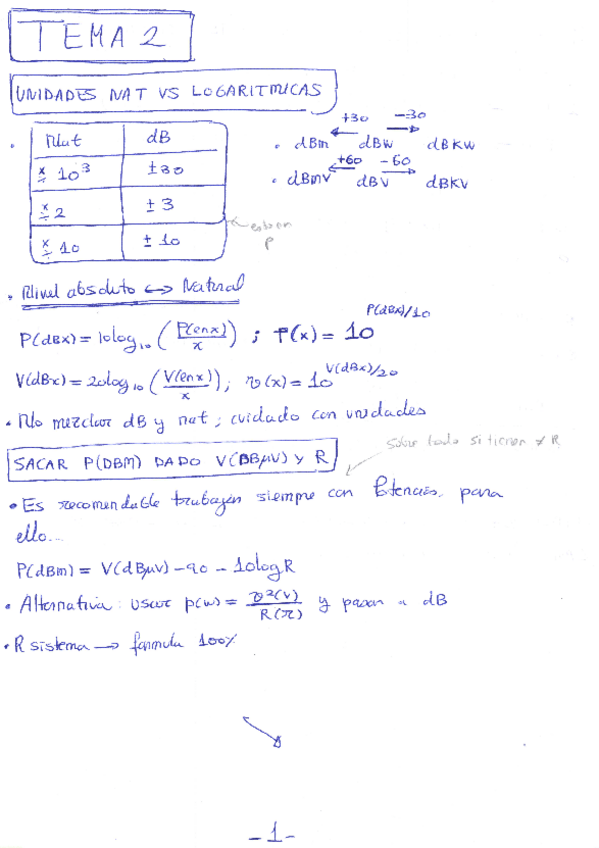 TEMA 2
UNIDADES NAT VS LOGARITMICAS
Nat dB
×÷ 10³ ±30
×÷ 2 ±3
×÷ 10 ±10
+30 -30
• dBm ← dBW → dBKW
+60 -60
• dBmV ← dBV → dBKV
P
• Nivel absoluto ↔ Natural
P(dBx) = 10log₁₀ (P(en x)/x) ; P(x) = 10^P(dBx)/10
V(dBx) = 20log₁₀ (V(en x)/x) ; v(x) = 10^V(dBx)/20
• No mezclar dB y nat ; cuidado con unidades
Sobre todo si tienen ≠ R
SACAR P(DBM) DADO V(DBμV) Y R
• Es recomendable trabajar siempre con Potencias, para
ello...
P(dBm) = V(dBμV) - 90 - 10logR
• Alternativa: usar p(w) = v²(v)/R(Ω) y pasar a dB
• R sistema → formula 100%
-1-